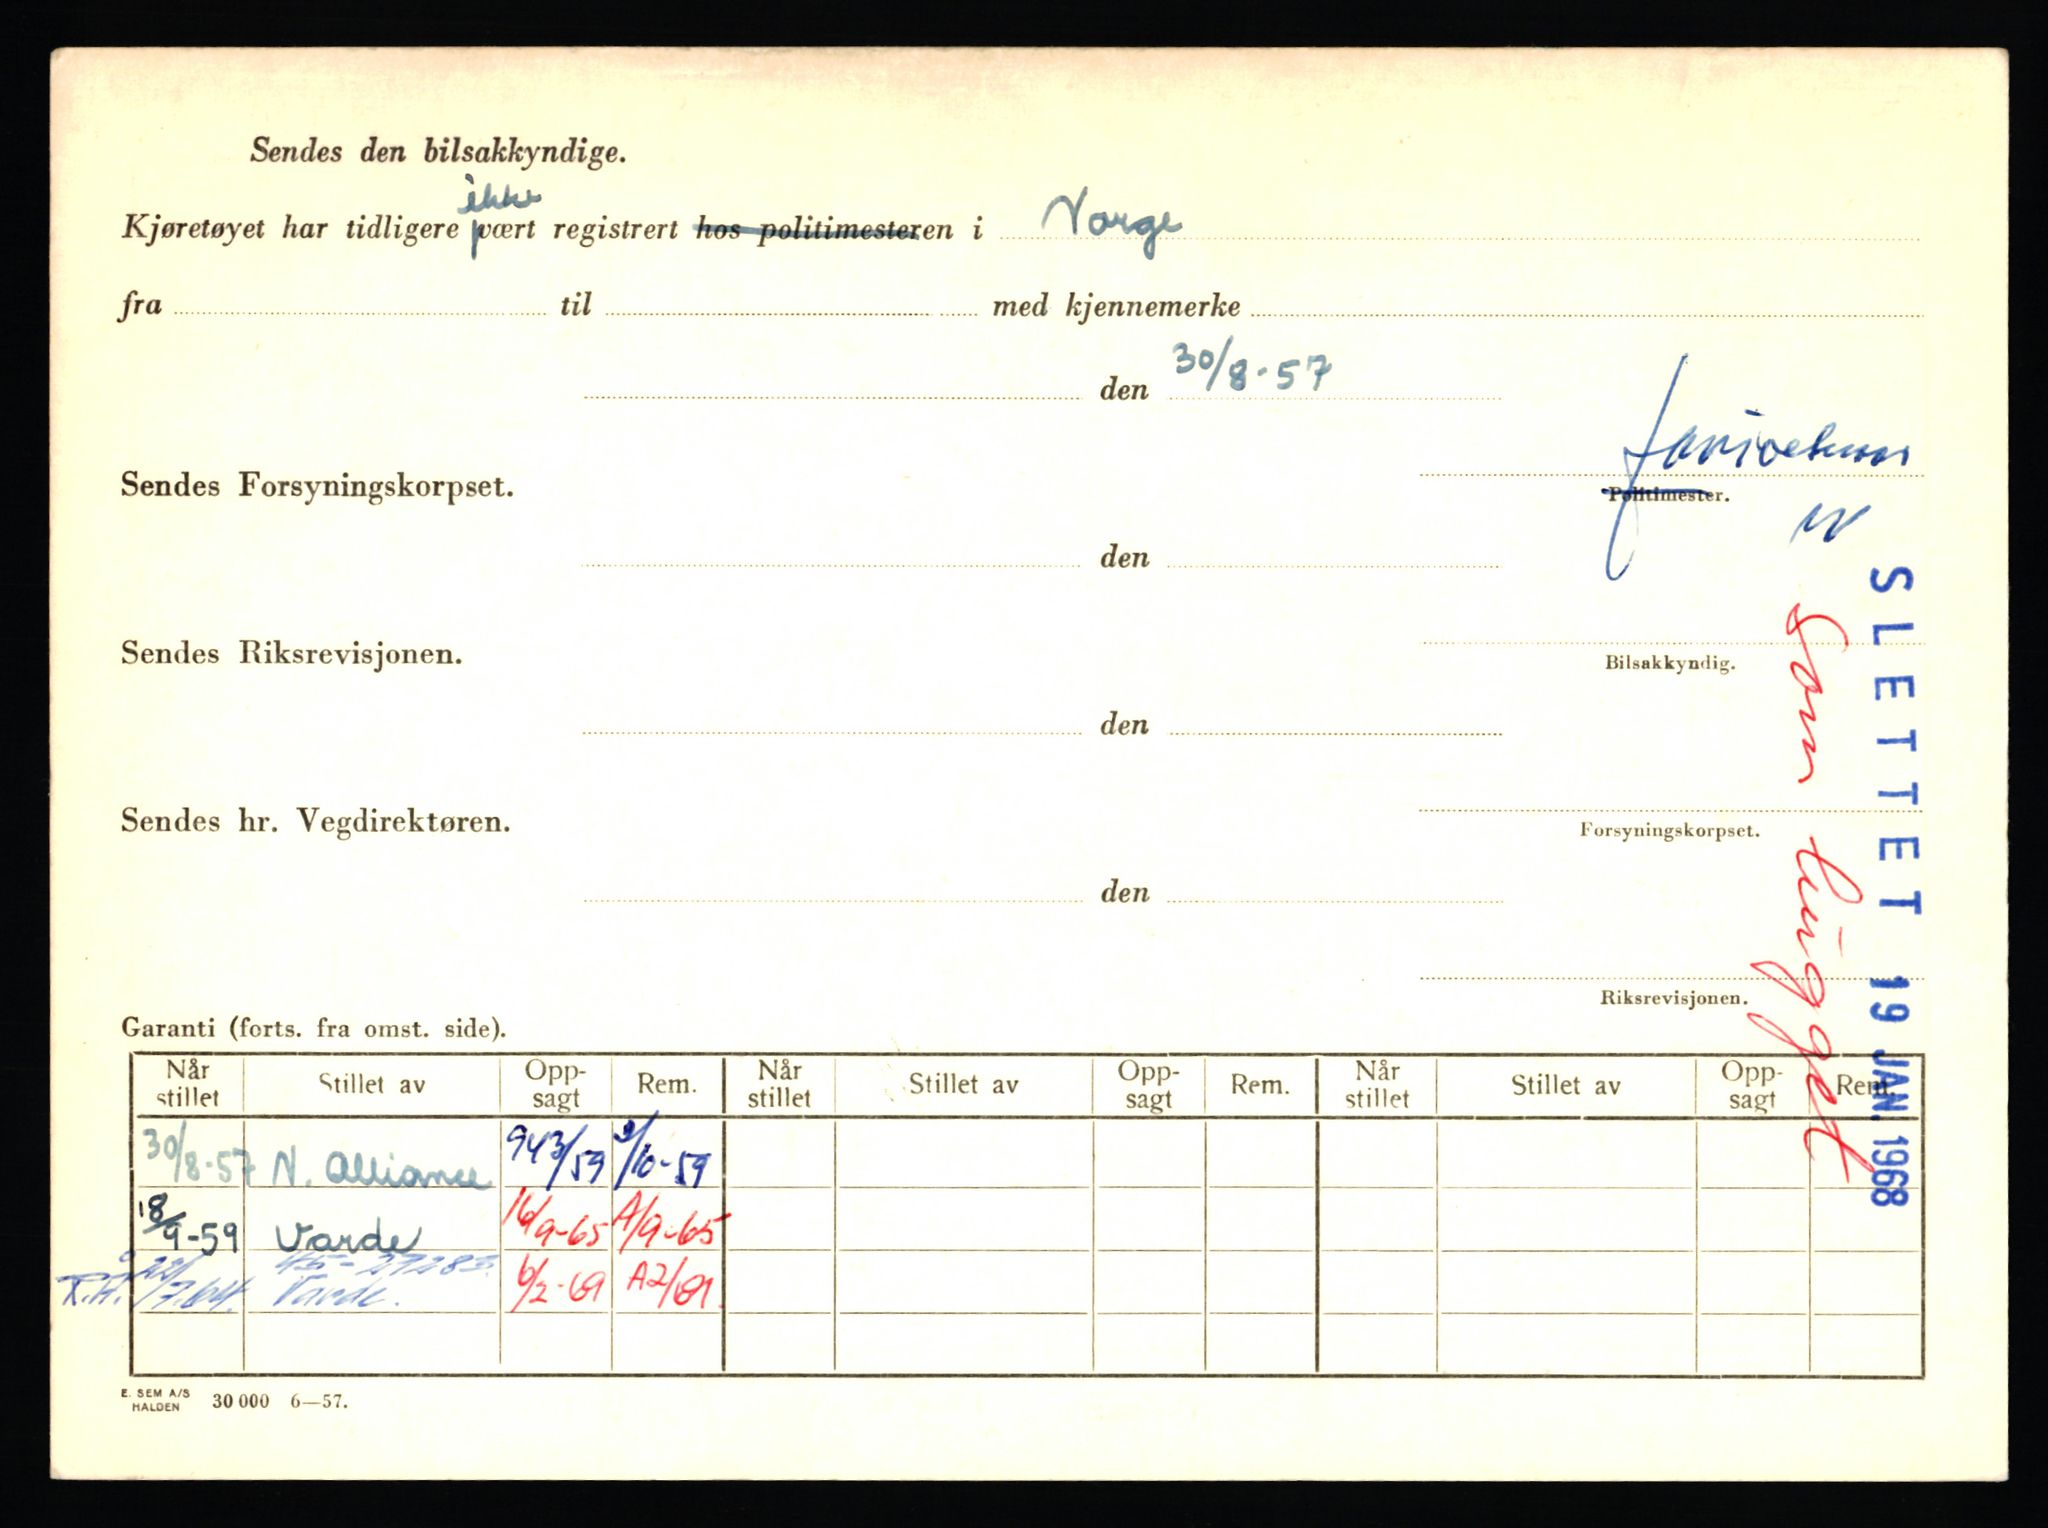 Sendes den bilsakkyndige.
ikke
Kjøretøyet har tidligere vært registrert hos politimesteren i Norge
fra til med kjennemerke
den 30/8-57
Sendes Forsyningskorpset.
Politimester.
den
Sendes Riksrevisjonen.
Bilsakkyndig.
den
Sendes hr. Vegdirektøren.
Forsyningskorpset.
den
Riksrevisjonen.
SLETTET 19 JAN. 1968
som hugget
Garanti (forts. fra omst. side).
Når stillet Stillet av Opp-sagt Rem. Når stillet Stillet av Opp-sagt Rem. Når stillet Stillet av Opp-sagt Rem.
30/8-57 N. Alliance 943/59 /10-59
18/9-59 Varde 16/9-65 A/9-65
45-27283.
22/7.64. Varde. 6/2-69 A2/69.
E. SEM A/S
HALDEN 30 000 6—57.